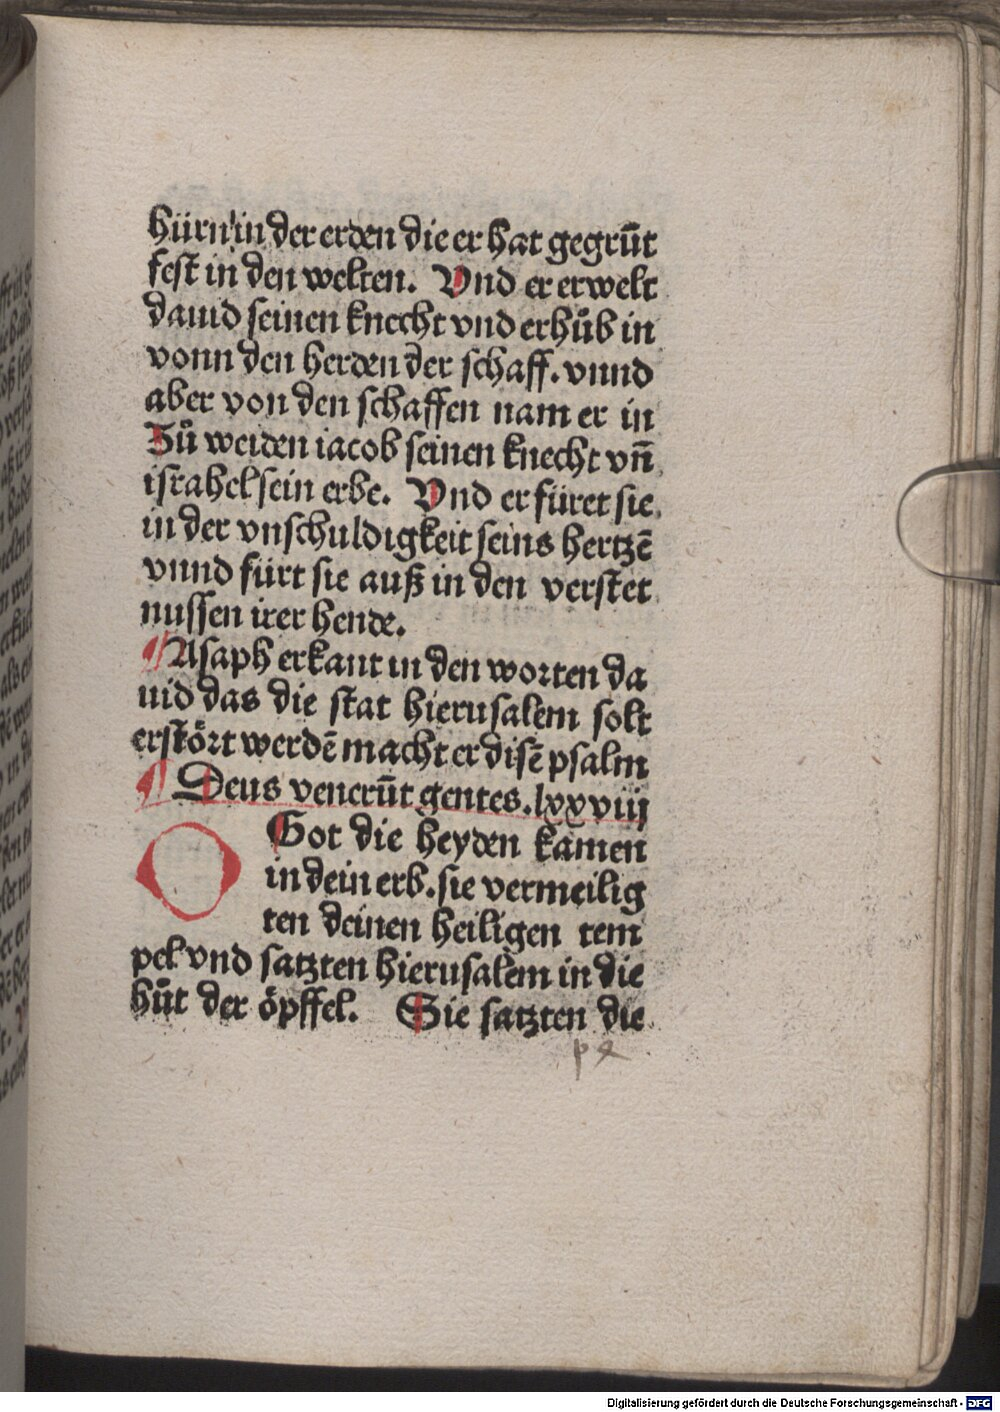 hürn in der erden die er hat gegrūt
fest in den welten. Vnd er erwelt
dauid seinen knecht vnd erhůb in
vonn den herden der schaff. vnnd
aber von den schaffen nam er in
Zů weiden iacob seinen knecht vn̄
israhel sein erbe. Vnd er füret sie
in der vnschuldigkeit seins hertzē
vnnd fürt sie auß in den verstet
nussen irer hende.
¶ Asaph erkant in den worten da
uid das die stat hierusalem solt
erstört werdē macht er disē psalm
¶ Deus venerūt gentes. lxxviij
O Got die heyden kamen
in dein erb. sie vermeilig
ten deinen heiligen tem
pel vnd satzten hierusalem in die
hůt der öpffel. Sie satzten die
Digitalisierung gefördert durch die Deutsche Forschungsgemeinschaft - DFG